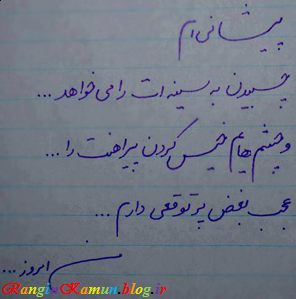 پیشانی ام
چسبیدن به سینه ات را می خواهد ...
و چشم هایم خیس کردن پیراهنت را ...
عجب بغض پر توقعی دارم ...
من امروز ...
Rangin Kamun.blog.ir